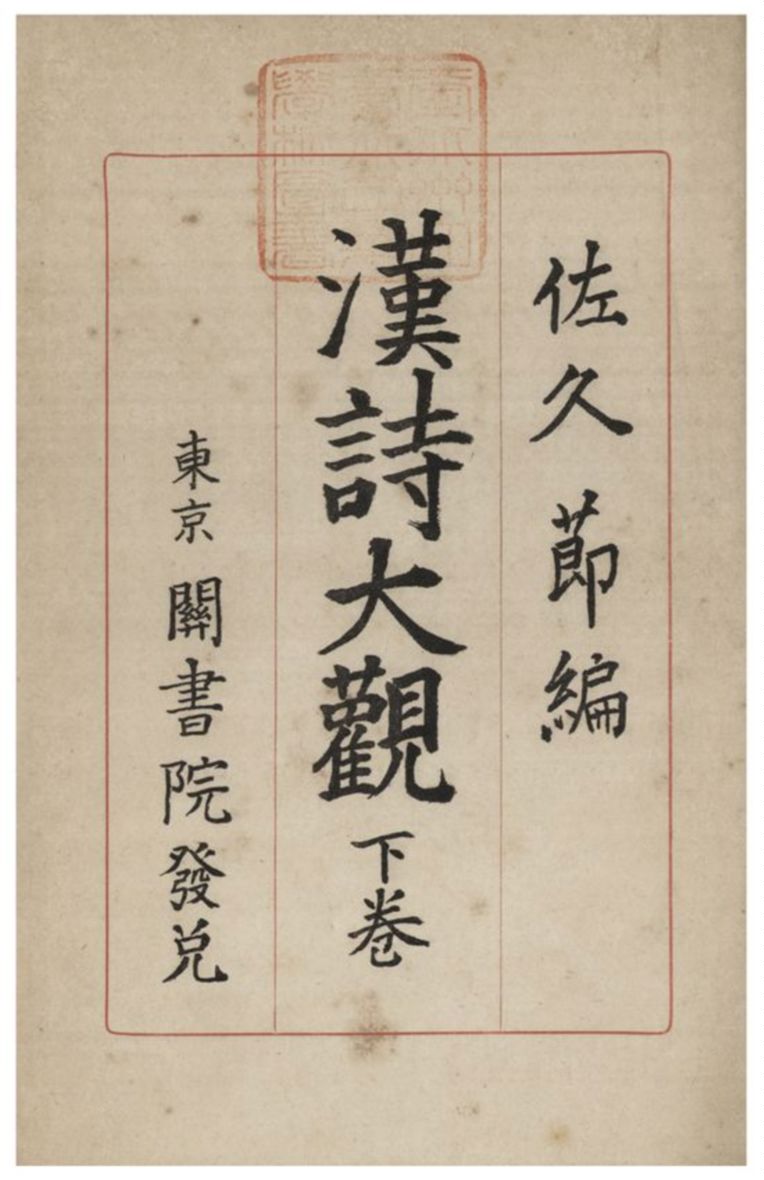 佐久節編
漢詩大觀 下巻
東京 關書院發兌